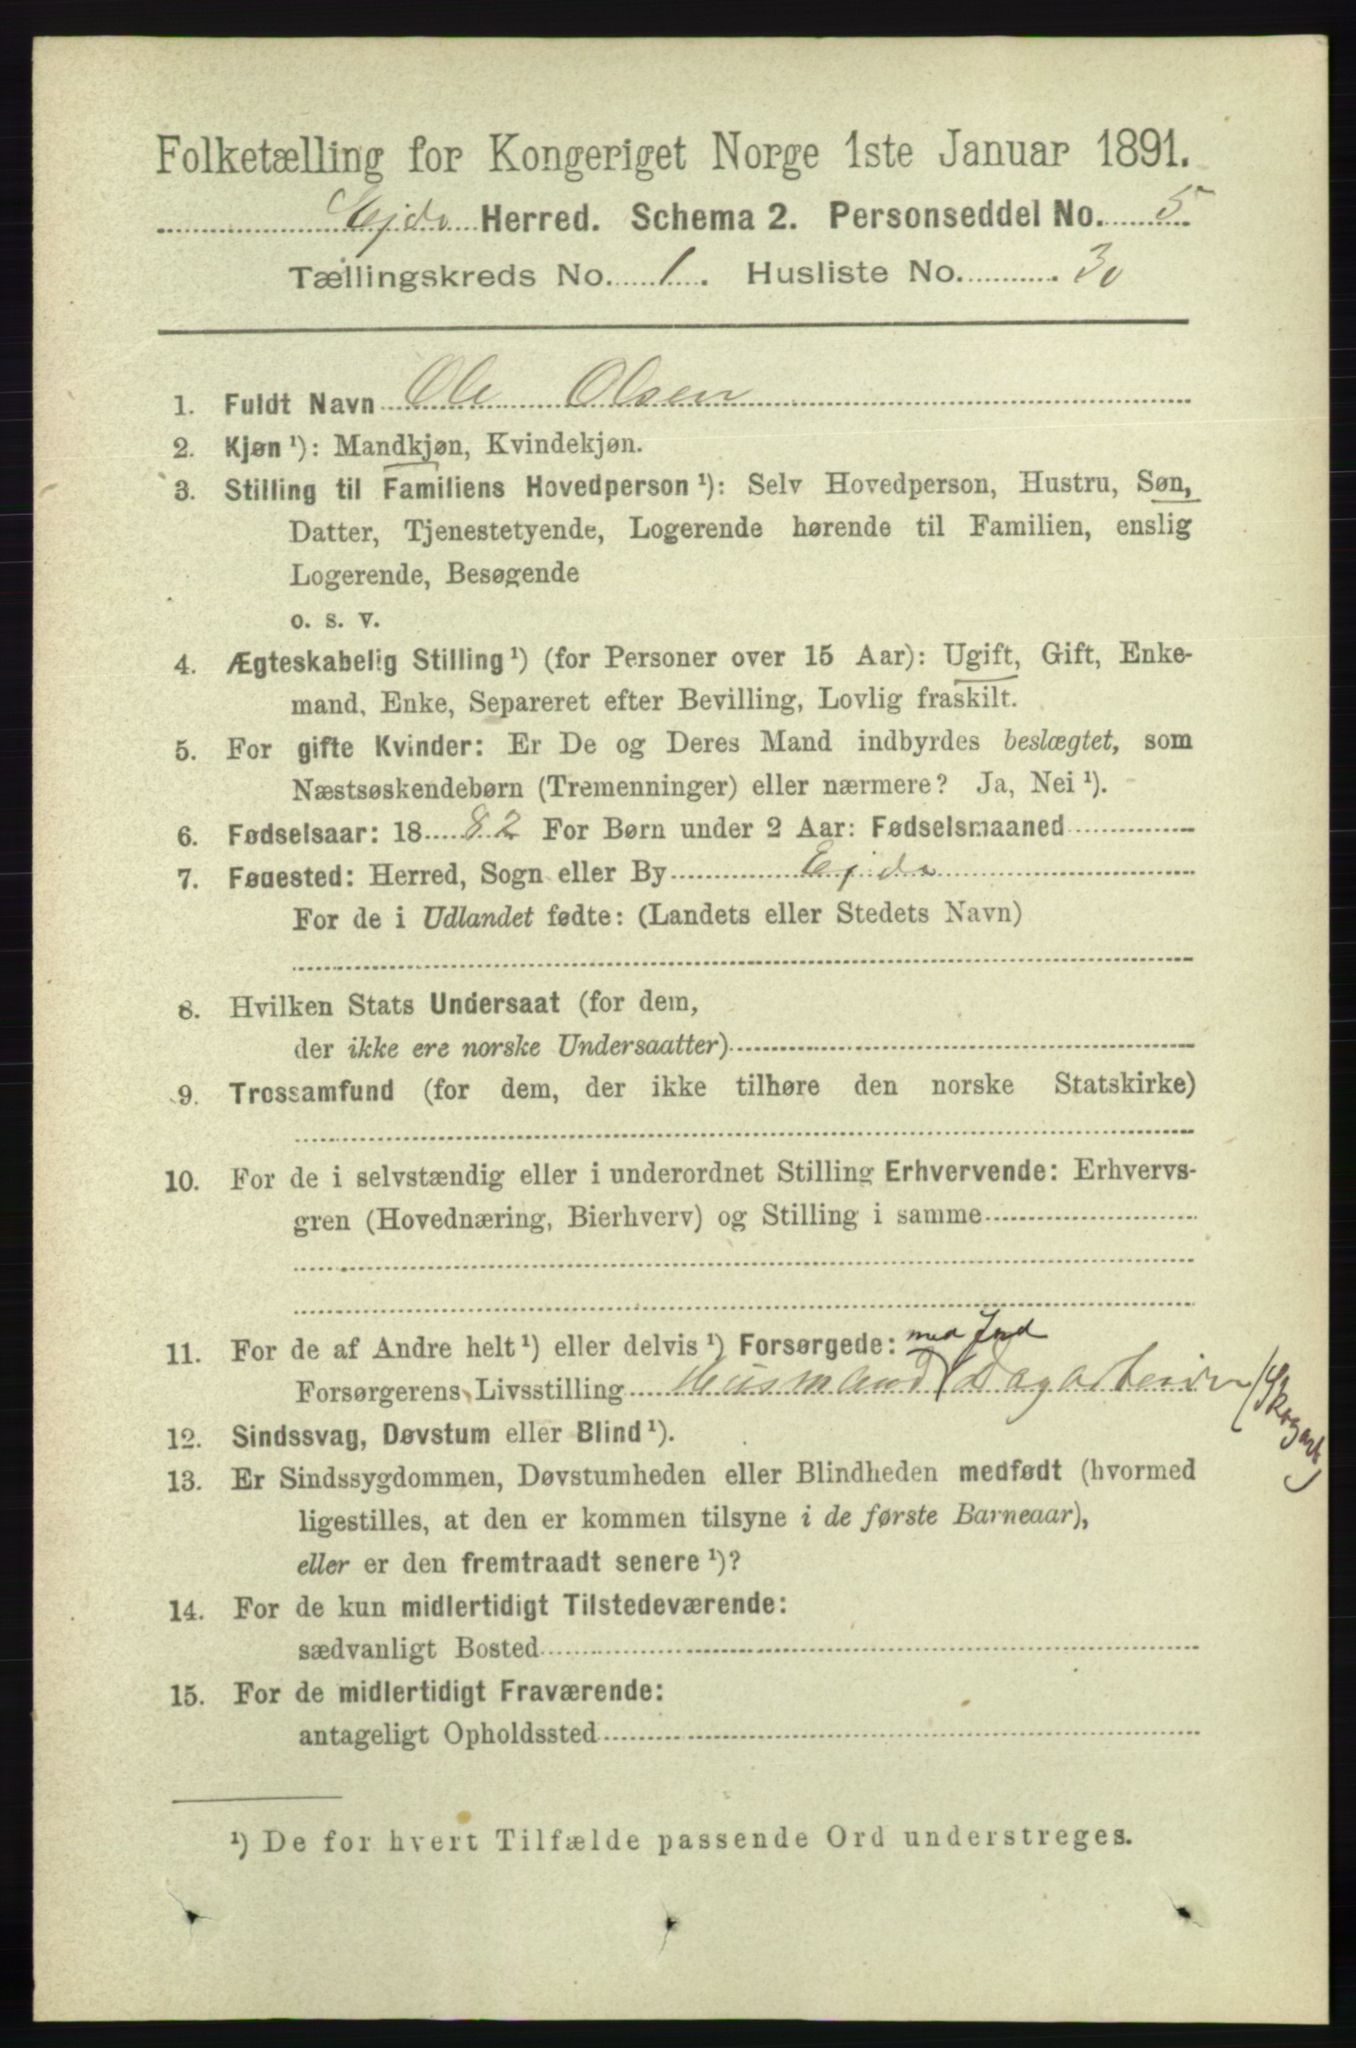 Folketælling for Kongeriget Norge 1ste Januar 1891.
Ejds Herred. Schema 2. Personseddel No. 5
Tællingskreds No. 1. Husliste No. 30
1. Fuldt Navn Ole Olsen
2. Kjøn ¹): Mandkjøn, Kvindekjøn.
3. Stilling til Familiens Hovedperson ¹): Selv Hovedperson, Hustru, Søn,
Datter, Tjenestetyende, Logerende hørende til Familien, enslig
Logerende, Besøgende
o. s. v.
4. Ægteskabelig Stilling ¹) (for Personer over 15 Aar): Ugift, Gift, Enke-
mand, Enke, Separeret efter Bevilling, Lovlig fraskilt.
5. For gifte Kvinder: Er De og Deres Mand indbyrdes beslægtet, som
Næstsøskendebørn (Tremenninger) eller nærmere? Ja, Nei ¹).
6. Fødselsaar: 18 82 For Børn under 2 Aar: Fødselsmaaned
7. Fødested: Herred, Sogn eller By Ejds
For de i Udlandet fødte: (Landets eller Stedets Navn)
8. Hvilken Stats Undersaat (for dem,
der ikke ere norske Undersaatter)
9. Trossamfund (for dem, der ikke tilhøre den norske Statskirke)
10. For de i selvstændig eller i underordnet Stilling Erhvervende: Erhvervs-
gren (Hovednæring, Bierhverv) og Stilling i samme
11. For de af Andre helt ¹) eller delvis ¹) Forsørgede: med Jord
Forsørgerens Livsstilling Husmand / Dagarbeider / Skogarb
12. Sindssvag, Døvstum eller Blind ¹).
13. Er Sindssygdommen, Døvstumheden eller Blindheden medfødt (hvormed
ligestilles, at den er kommen tilsyne i de første Barneaar),
eller er den fremtraadt senere ¹)?
14. For de kun midlertidigt Tilstedeværende:
sædvanligt Bosted
15. For de midlertidigt Fraværende:
antageligt Opholdssted
¹) De for hvert Tilfælde passende Ord understreges.